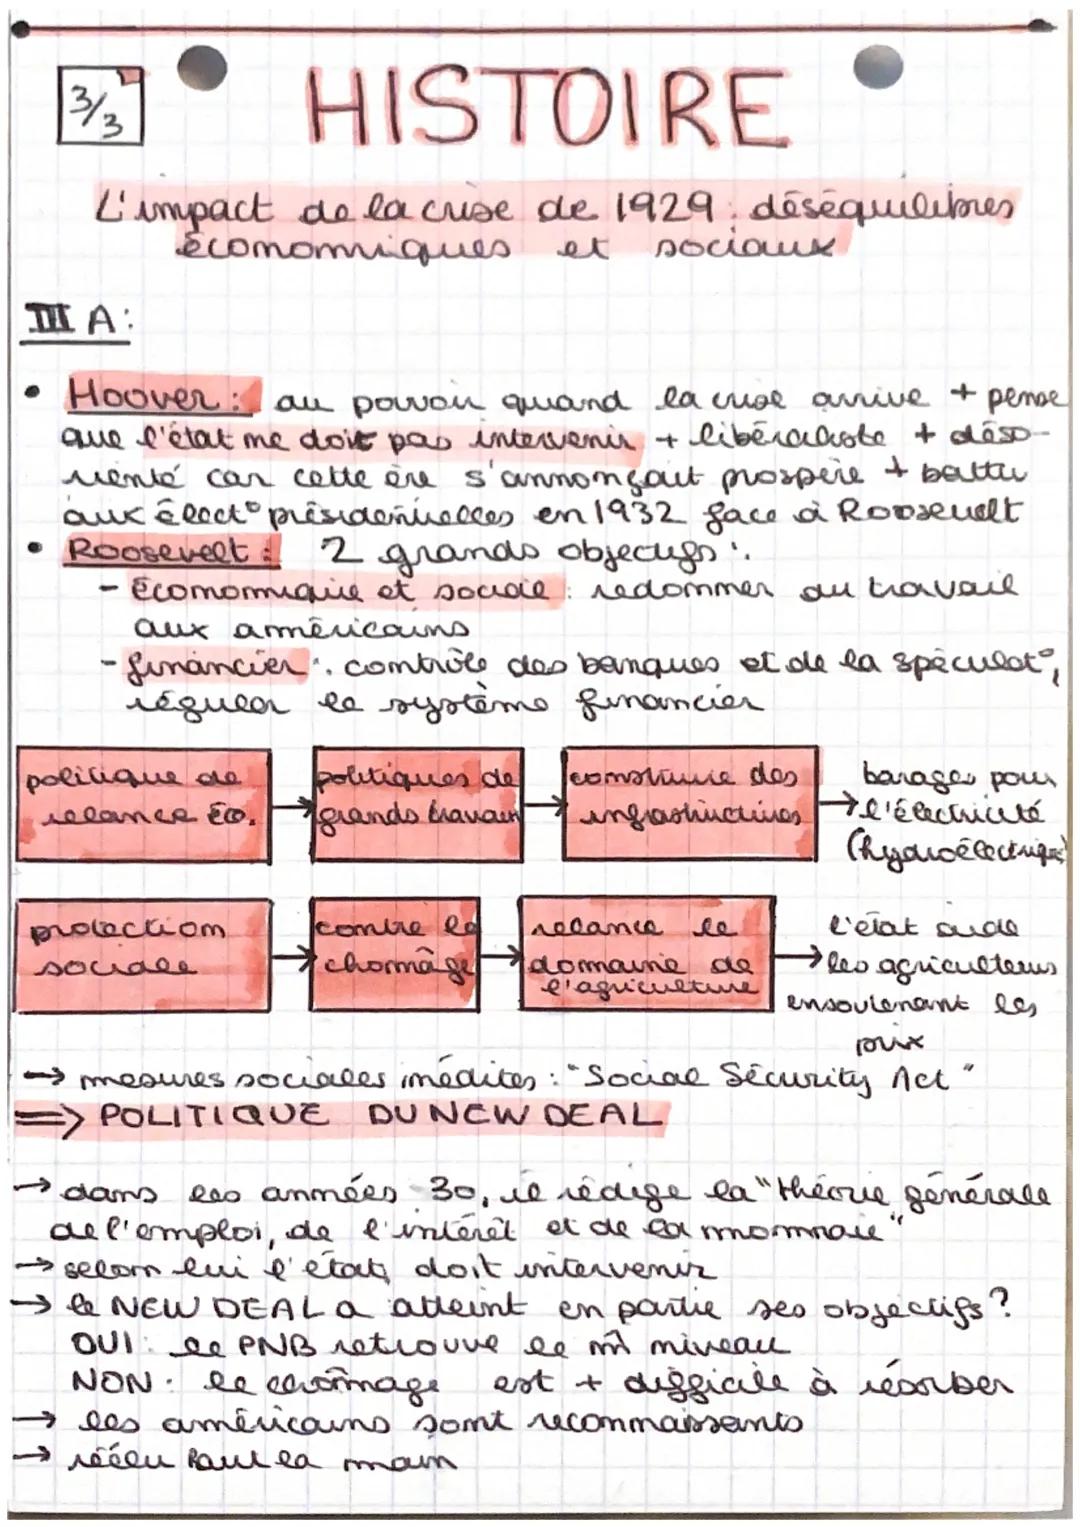 3/3
HISTOIRE
L'impact de la crise de 1929 : déséquilibres
économiques et sociaux
III A:
• Hoover : au pouvoir quand la crise arrive + pense
que l'état ne doit pas intervenir + libéraliste + déso-
rienté car cette ère s'annonçait prospère + battu
aux élect° présidentielles en 1932 face à Roosevelt
• Roosevelt : 2 grands objectifs :
- économique et sociale : redonner du travail
aux américains
- financier : contrôle des banques et de la spéculat°,
réguler le système financier
politique de
relance éco.
→ politiques de
grands travaux
→ construire des
infrastructures
→ barages pour
l'électricité
(hydroélectrique)
protection
sociale
→ contre le
chômâge
→ relance le
domaine de
l'agriculture
→ l'état aide
les agriculteurs
en soutenant les
prix
→ mesures sociales inédites : "Social Sécurity Act"
=> POLITIQUE DU NEW DEAL
→ dans les années 30, il rédige la "théorie générale
de l'emploi, de l'intérêt et de la monnaie"
→ selon lui l'état doit intervenir
→ le NEW DEAL a atteint en partie ses objectifs ?
OUI : le PNB retrouve le m̂ niveau
NON : le chômage est + difficile à résorber
→ les américains sont reconnaissants
→ réélu haut la main